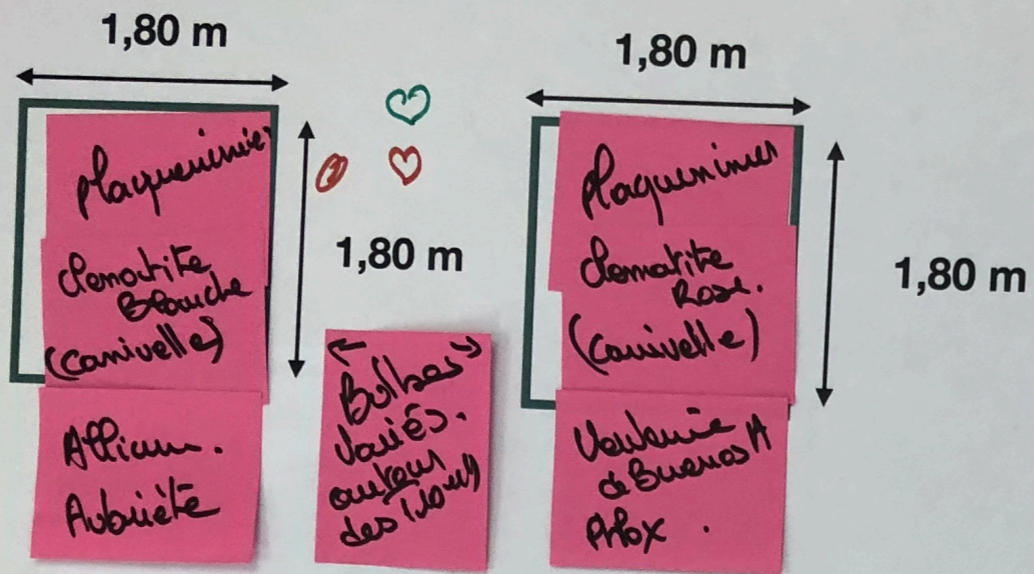 1,80 m
Plaqueminier
1,80 m
Clematite
Blanche
(Canivelle)
Allium.
Aubriète
Bulbes
variés.
autour
des
1,80 m
Plaqueminier
1,80 m
Clematite
Rose.
(Canivelle)
Verveine
de Buenos A
Phlox .